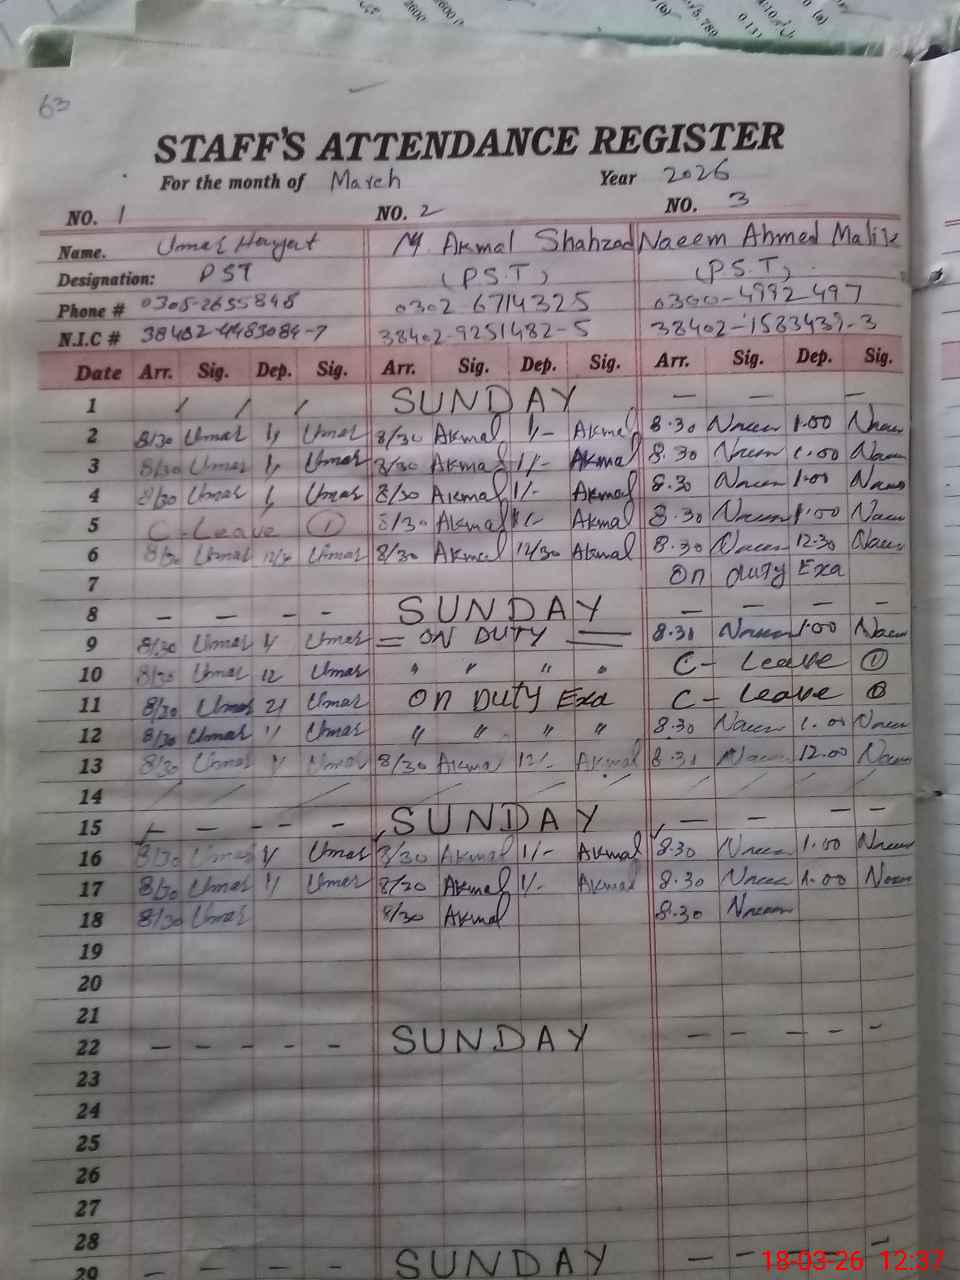 63
STAFF'S ATTENDANCE REGISTER
For the month of March Year 2026
NO. 1 NO. 2 NO. 3
Name. Umar Hayat M. Akmal Shahzad Naeem Ahmed Malik
Designation: PST (P.S.T) (P.S.T)
Phone # 0305-2655848 0302 6714325 0300-4992497
N.I.C # 38402-4483084-7 38402-9251482-5 38402-1583439-3
Date Arr. Sig. Dep. Sig. Arr. Sig. Dep. Sig. Arr. Sig. Dep. Sig.
1 / / / SUNDAY — — —
2 8/30 Umar 1/ Umar 8/30 Akmal 1/- Akmal 8.30 Naeem 1.00 Naeem
3 8/30 Umar 1/ Umar 8/30 Akmal 1/- Akmal 8.30 Naeem 1.00 Naeem
4 8/30 Umar 1/ Umar 8/30 Akmal 1/- Akmal 8.30 Naeem 1.00 Naeem
5 C-Leave (1) 8/30 Akmal 1/- Akmal 8.30 Naeem 1.00 Naeem
6 8/30 Umar 12/30 Umar 8/30 Akmal 12/30 Akmal 8.30 Naeem 12.30 Naeem
7 On duty Exa
8 — — — - SUNDAY — — — -
9 8/30 Umar 1/ Umar = ON DUTY = 8.30 Naeem 1.00 Naeem
10 8/30 Umar 12 Umar " " " " C- Leave (1)
11 8/30 Umar Umar On Duty Exa C- Leave
12 8/30 Umar 1/ Umar " " " " 8.30 Naeem 1.00 Naeem
13 8/30 Umar 1/ Umar 8/30 Akmal 12/- Akmal 8.30 Naeem 12.00 Naeem
14 / / / / / / / / / / /
15 — — - - - SUNDAY — — — —
16 8/30 Umar 1/ Umar 8/30 Akmal 1/- Akmal 8.30 Naeem 1.00 Naeem
17 8/30 Umar 1/ Umar 8/30 Akmal 1/- Akmal 8.30 Naeem 1.00 Naeem
18 8/30 Umar 8/30 Akmal 8.30 Naeem
19
20
21
22 — - - - - SUNDAY — - — - -
23
24
25
26
27
28
29 — — - - - SUNDAY — - — - -
18-03-26 12:37